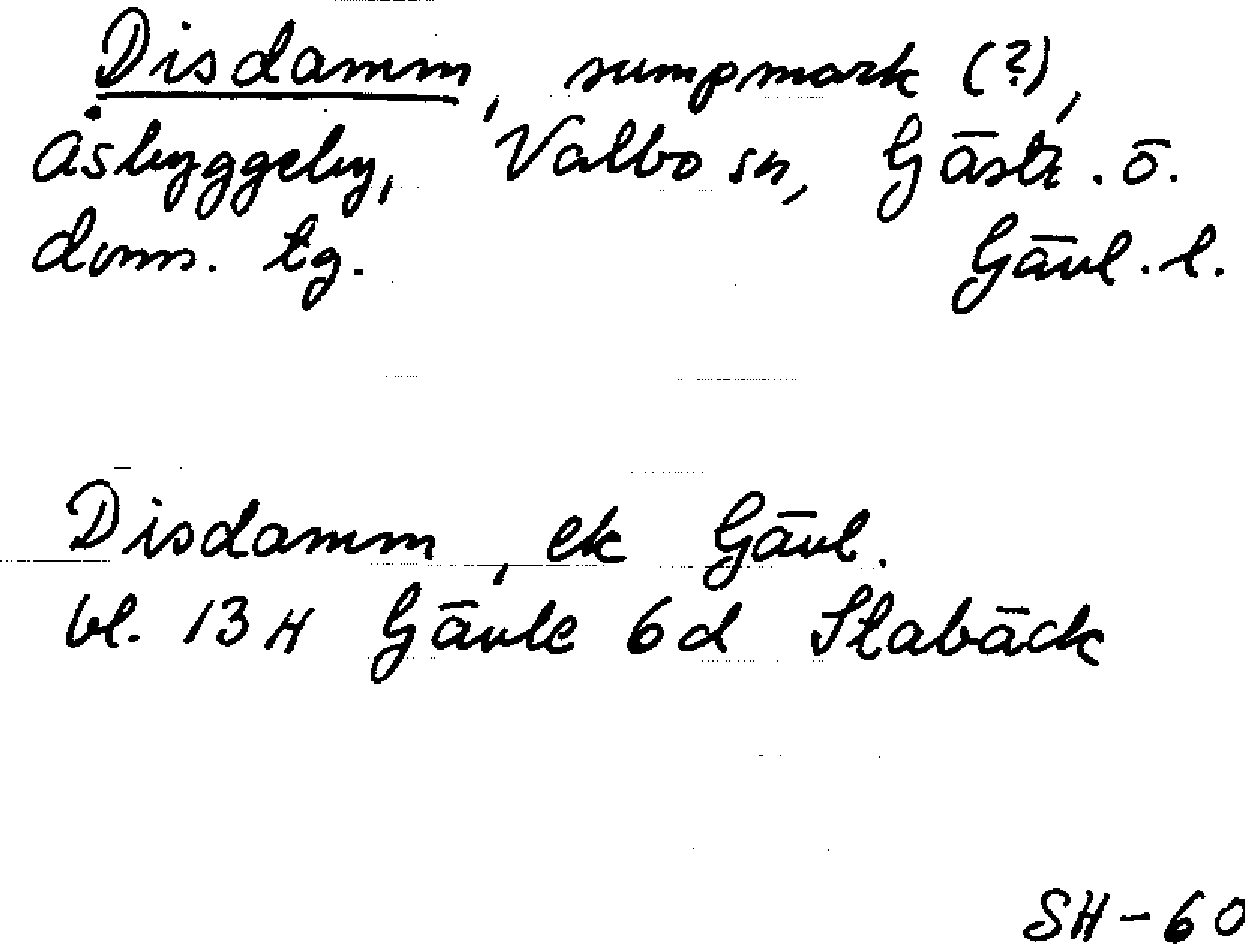 Disdamm, sumpmark (?),
Åsbyggeby, Valbo sn, Gästr. ö.
doms. tg. Gävl. l.
Disdamm, ek Gävl.
bl. 13 H Gävle 6d Stabäck
SH-60